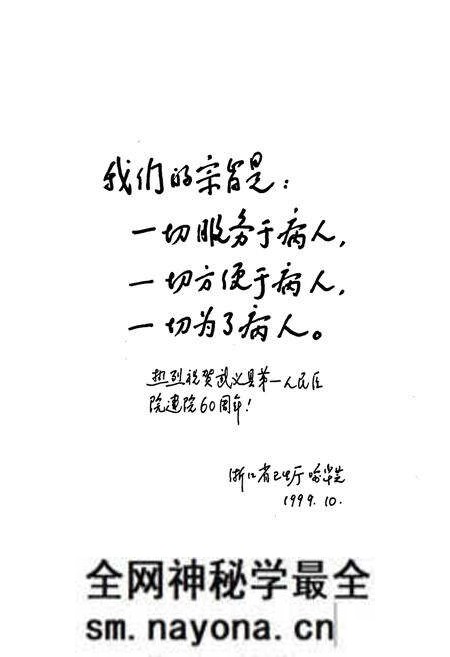 我们的宗旨是:
一切服务于病人,
一切方便于病人,
一切为了病人。
热烈祝贺武义县第一人民医
院建院60周年!
浙江省卫生厅
1999.10.
全网神秘学最全
sm.nayona.cn